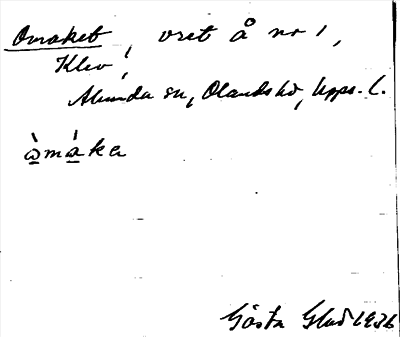 Omaket, vret å nr 1,
Klev,
Alunda sn, Olands hd, Upps. l.
òmàka
Gösta Glad 1936